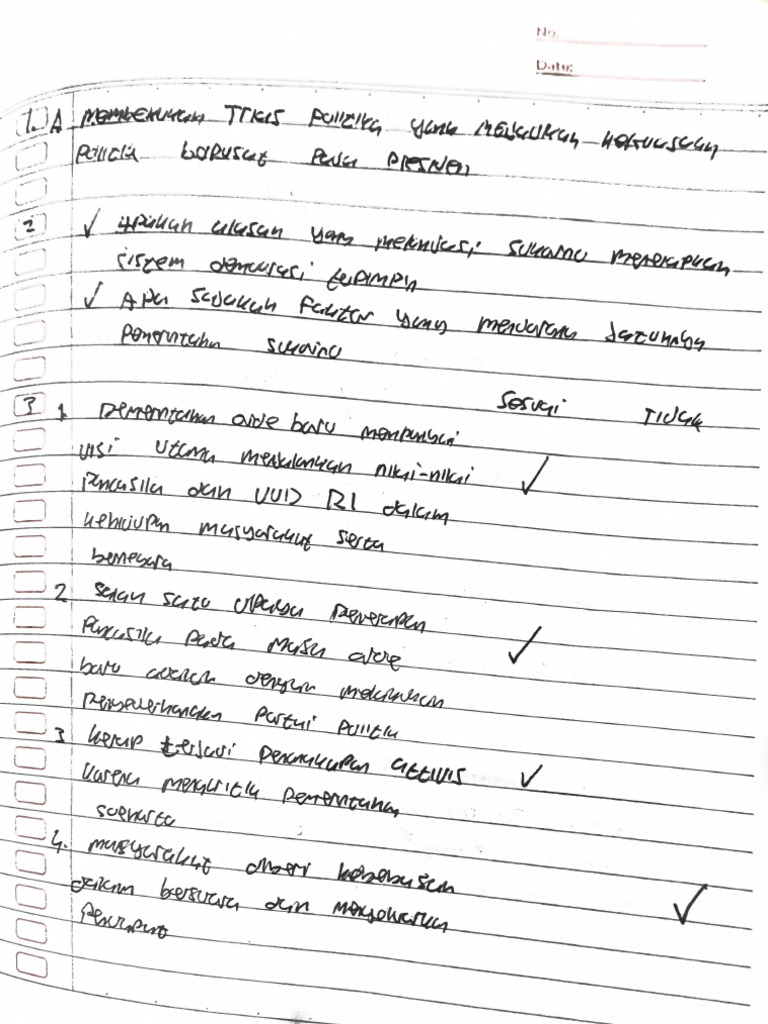 No.
Date:
1. A Memberlakukan TRIAS Politika yang kekuasaan
Politik berpusat pada Presiden
2 ✓ apakah alasan yang Sukarno menerapkan
sistem demokrasi terpimpin
✓ Apa sajakah Faktor yang jatuhnya
Pemerintahan Sukarno
Sesuai Tidak
3 1. Pemerintahan orde baru mempunyai
visi utama menjalankan nilai-nilai ✓
Pancasila dan UUD RI dalam
kehidupan masyarakat serta
bernegara
2 salah satu upaya Penerapan
Pancasila pada masa orde ✓
baru adalah dengan melakukan
Penyederhanaan Partai Politik
3 kerap terjadi penangkapan aktivis ✓
karena mengkritik pemerintahan
soeharto
4. masyarakat diberi kebebasan
dalam bersuara dan menyalurkan ✓
Pendapat